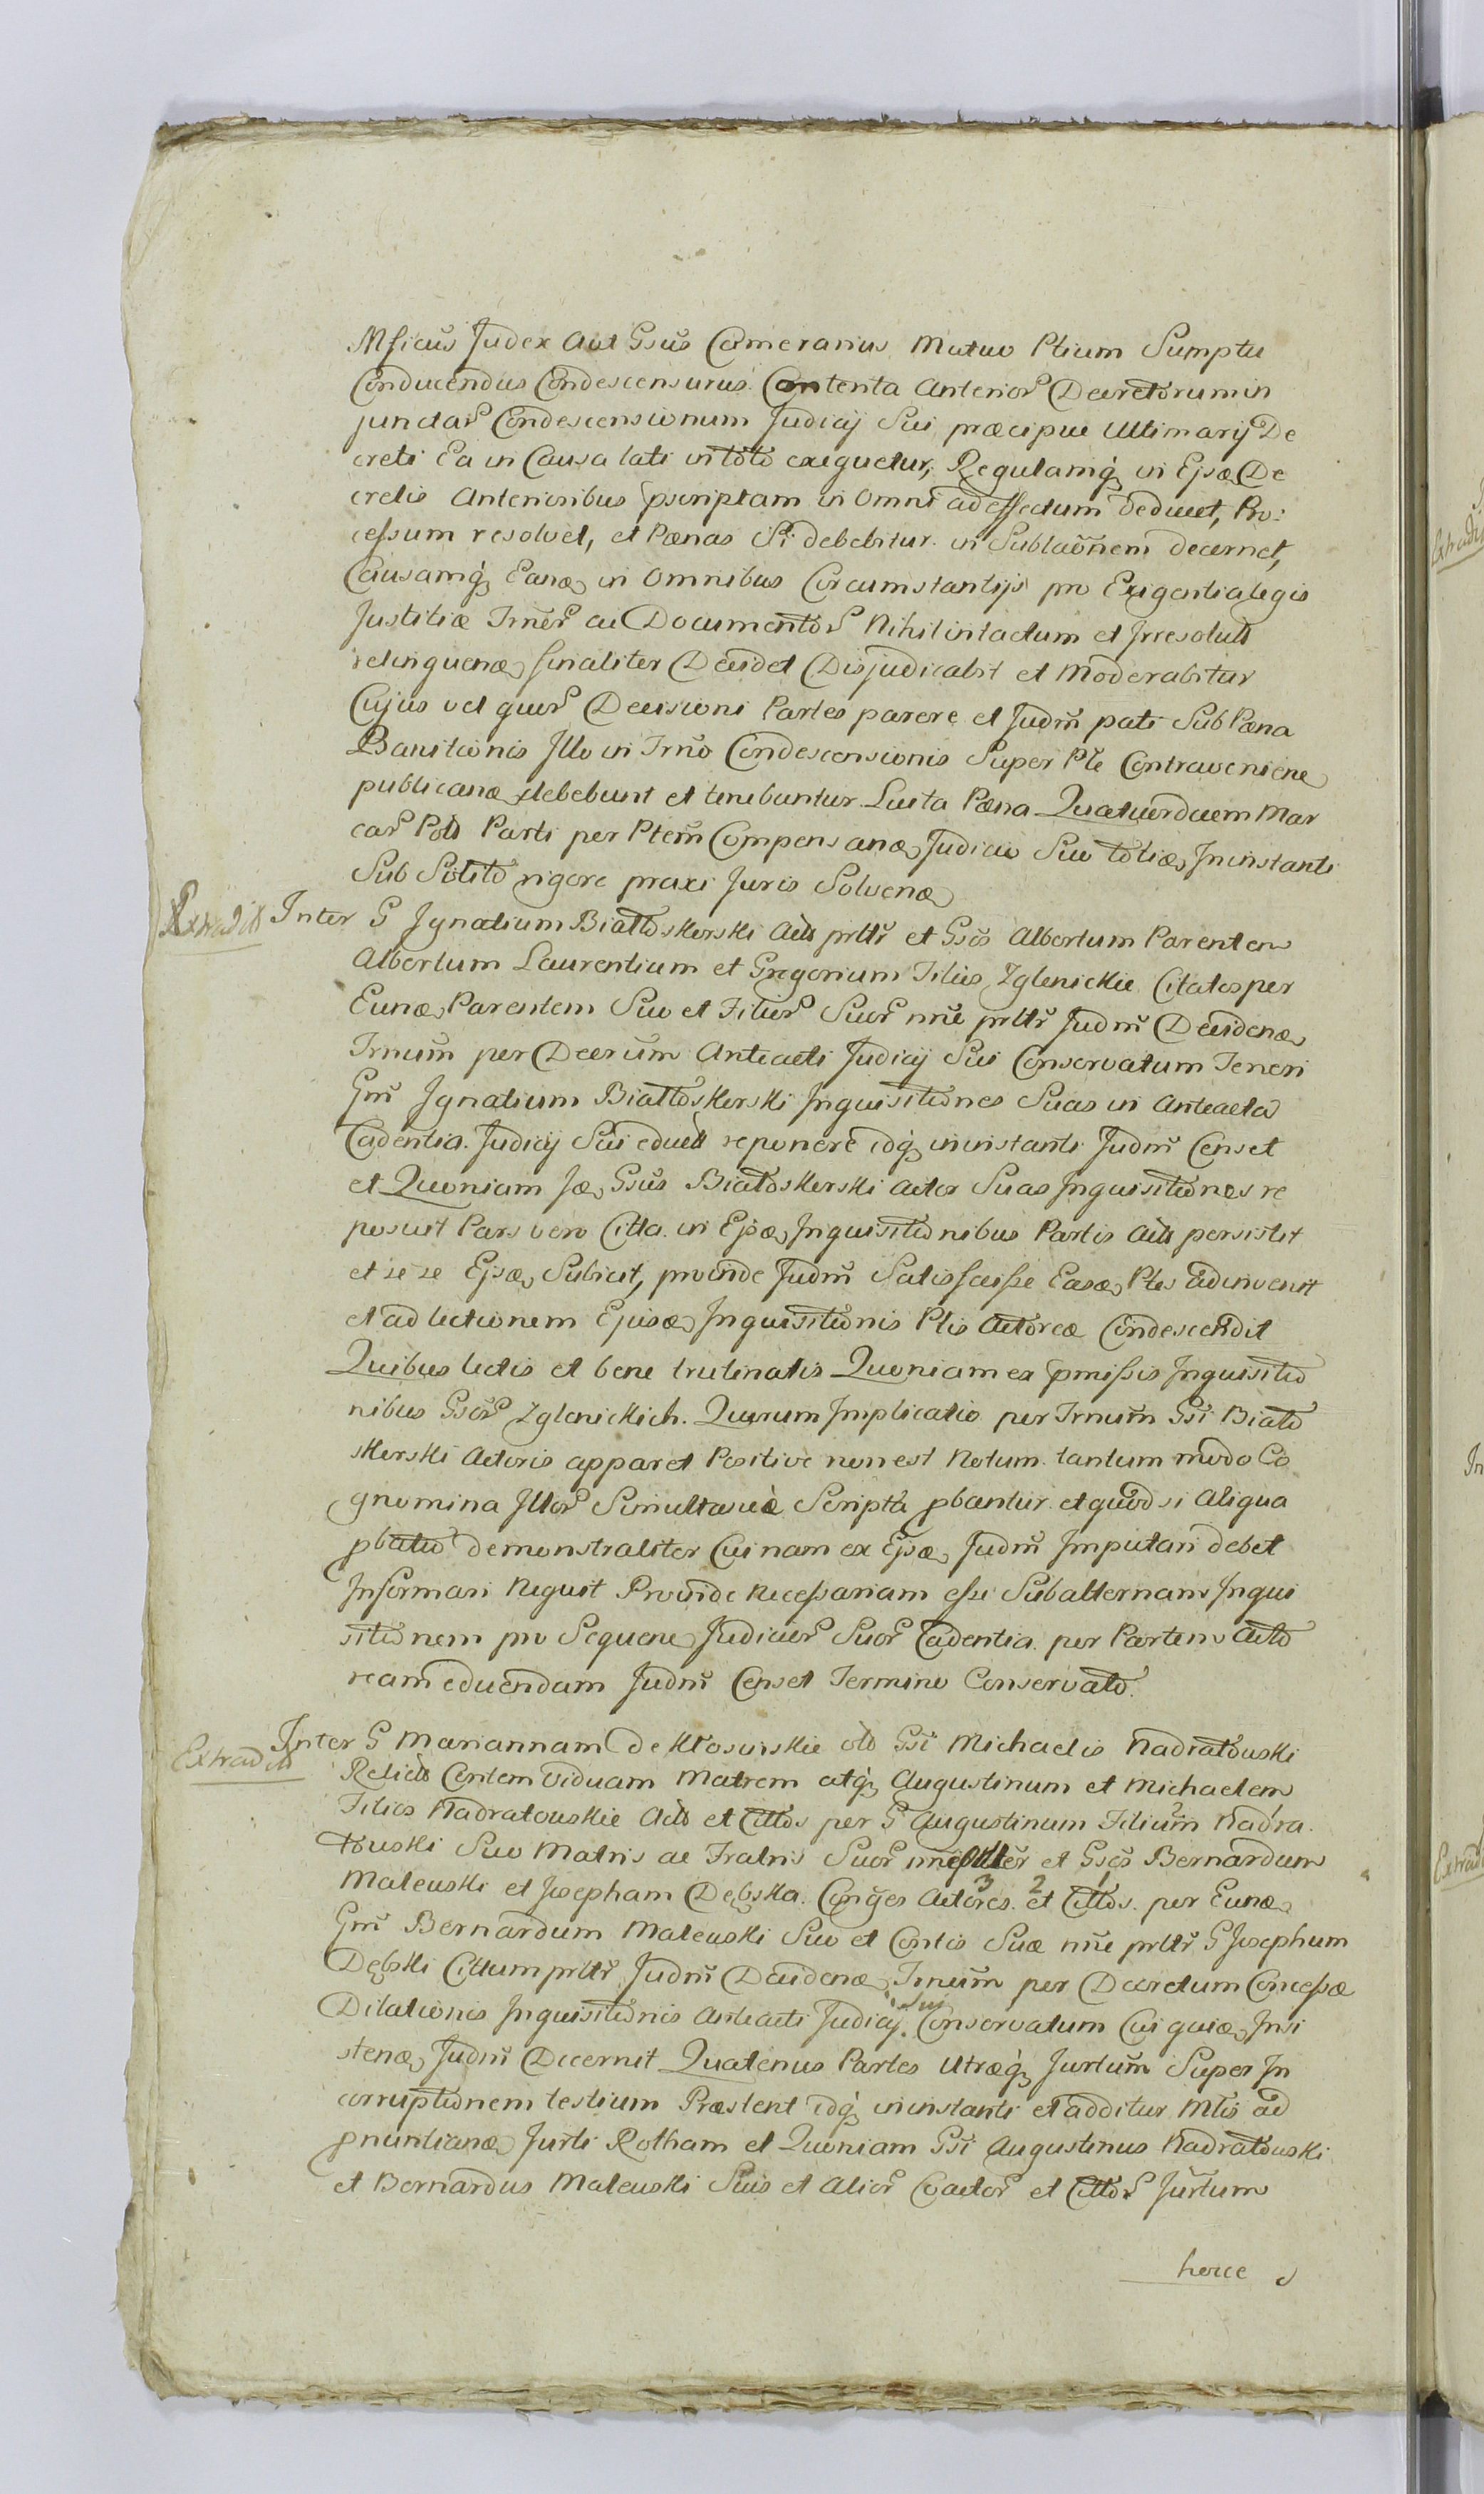 Mficus Judex Aut Gsus Camerarius Mutuo Ptium Sumptu
Conducendus Condescensurus Contenta Anterior Decretorum in
junctar Condescensionum Judicij Sui præcipue Ultimarij De
creti Ea in Causa lati in toto exequetur, Regulamq in Ejsdæ De
cretis Anterioribus pscriptam in Omni ad effectum deducet, Pro:
cessum resolvet, et Pænas Si debebitur in Sublaõnem decernet,
Causamq Eandæ in Omnibus Circumstantijs pro Exigentia legis
Justitiæ Trner ac Documentor Nihil intactum et Irresolutũ
relinquenæ finaliter Decidet Disjudicabit et Moderabitur
Cujus vel quor Decisioni Partes parere et Judm pati Sub Pæna
Banitionis Illo in Trno Condescensionis Super Pte Contraveniene
publicanæ debebunt et tenebuntur Luita Pæna Quatuordecem Mar
car Poll Parti per Ptem Compensanæ Judicio Suo totiæ In instanti
Sub Solito rigore praxi Juris Solvenæ
Extradit Inter G Ignatium Białłoskorski Act prttr et Gsos Albertum Parentem
Albertum Laurentium et Gregorium Filios Zglenickie Citatos per
Eunæ Parentem Suo et Filior Suor nne prttr Judm Decidenæ
Trnum per Decrum Anteacti Judicij Sui Conservatum Teneri
Gm Ignatium Białłoskorski Inquisitiones Suas in Anteacta
Cadentia Judicij Sui eductt reponere idq in instanti Judm Censet
et Quoniam Jæ Gsus Białoskorski Actor Suas Inquisitiones re
posuit Pars vero Citta in Ejsæ Inquisitionibus Partis Act persistit
et se se Ejsæ Subicit, proinde Judm Satisfacisse Easæ Ptes adinvenit
et ad lectionem Ejusæ Inquisitionis Ptis Actoreæ Condescendit
Quibus lectis et bene trutinatis Quoniam ex pmissis Inquisitio
nibus Gsor Zglenickich Quorum Implicatio per Trnum Gsi Biało
skorski Actoris apparet Positive non est Notum tantum modo Co
gnomina Illor Simultanea Scripta pbantur et quod si Aliqua
pbatio demonstraliter Cuinam ex Ejsæ Judm Imputari debet
Informari Nequit Proinde Necessariam esse Subalternam Inqui
sitionem pro Sequene Judicior Suor Cadentia per Partem Acto
ream educendam Judm Censet Termino Conservato.
Extradit Inter G Mariannam de Kłosowskie olo Gsi Michaelis Nadratowski
Relict Contem Viduam Matrem atq Augustinum et Michaelem
Filios Nadratouskie Act et Cittos per G Augustinum Filium Nadra
touski Suo Matris ac Fratris Suor nne prttr et Gsos Bernardum
Maleuski et Josepham Dębska Conges Actores 3 et 2 Cittos per Eunæ
Gm Bernardum Maleuski Suo et Contis Suæ nne prttr G Josephum
Dębski Cittum prttr Judm Decidenæ Trnum per Decretum Concessæ
Dilationis Inquisitionis Anteacti Judicij Sui Conservatum Cui quiæ Insi
stenæ Judm Decernit Quatenus Partes Utræq Jurtum Super In
corruptionem testium Præstent idq in instanti et additur Mtis ad
pnuntianæ Jurti Rotham et Quoniam Gsi Augustinus Nadratouski
et Bernardus Maleuski Suis et Alior Coactor et Cittor Jurtum
hocce